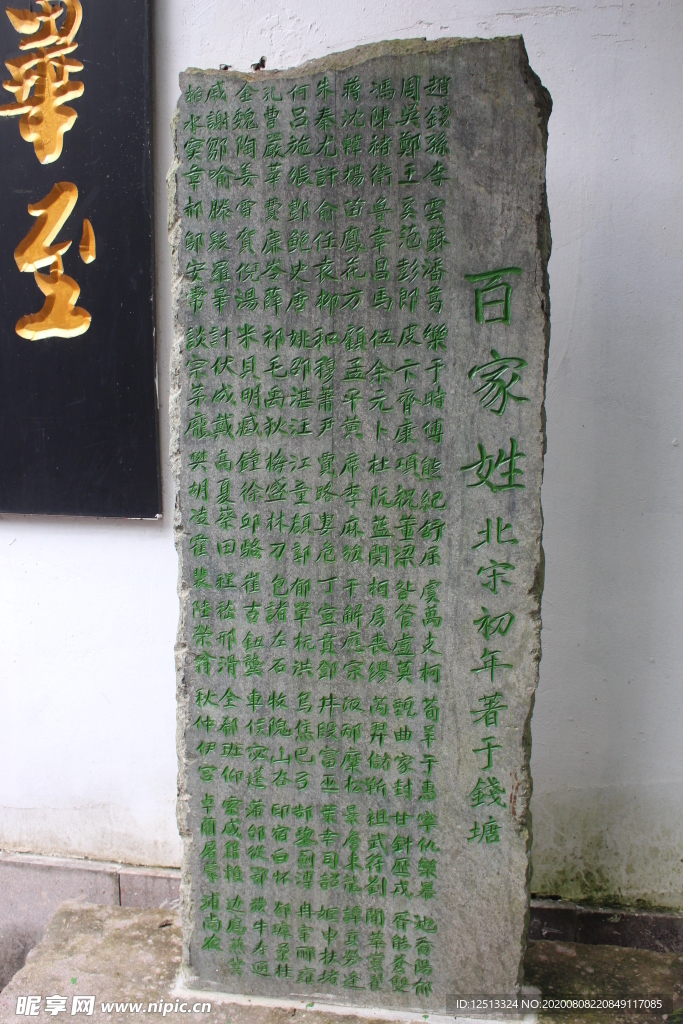 畢至
百家姓 北宋初年著于錢塘
趙錢孫李 雲蘇潘葛 樂于時傅 熊紀舒屈 虞萬支柯 荀羊于惠 寧仇欒暴 池喬陽郁
周吳鄭王 奚范彭郎 皮卞齊康 項祝董梁 昝管盧莫 甄曲家封 甘鈄厲戎 胥能蒼雙
馮陳褚衛 魯韋昌馬 伍余元卜 杜阮藍閔 柯房裘繆 芮羿儲靳 祖武符劉 聞莘黨翟
蔣沈韓楊 苗鳳花方 顧孟平黃 席季麻強 干解應宗 汲邴糜松 景詹束龍 譚貢勞逄
朱秦尤許 俞任袁柳 和穆蕭尹 賈路婁危 丁宣賁鄧 井段富巫 葉幸司韶 姬申扶堵
何呂施張 酆鮑史唐 姚邵湛汪 江童顏郭 郁單杭洪 烏焦巴弓 郜黎薊溥 冉宰酈雍
孔曹嚴華 費廉岑薛 祁毛禹狄 梅盛林刁 包諸左石 牧隗山谷 印宿白懷 郤璩桑桂
金魏陶姜 雷賀倪湯 米貝明臧 鍾徐邱駱 崔吉鈕龔 車侯宓蓬 蒲邰從鄂 濮牛壽通
戚謝鄒喻 滕殷羅畢 計伏成戴 高夏蔡田 程嵇邢滑 全郗班仰 索咸籍賴 邊扈燕冀
柏水竇章 郝鄔安常 談宋茅龐 樊胡凌霍 裴陸榮翁 秋仲伊宮 卓藺屠蒙 浦尚農
昵享网 www.nipic.cn
ID:12513324 NO:20200808220849117085